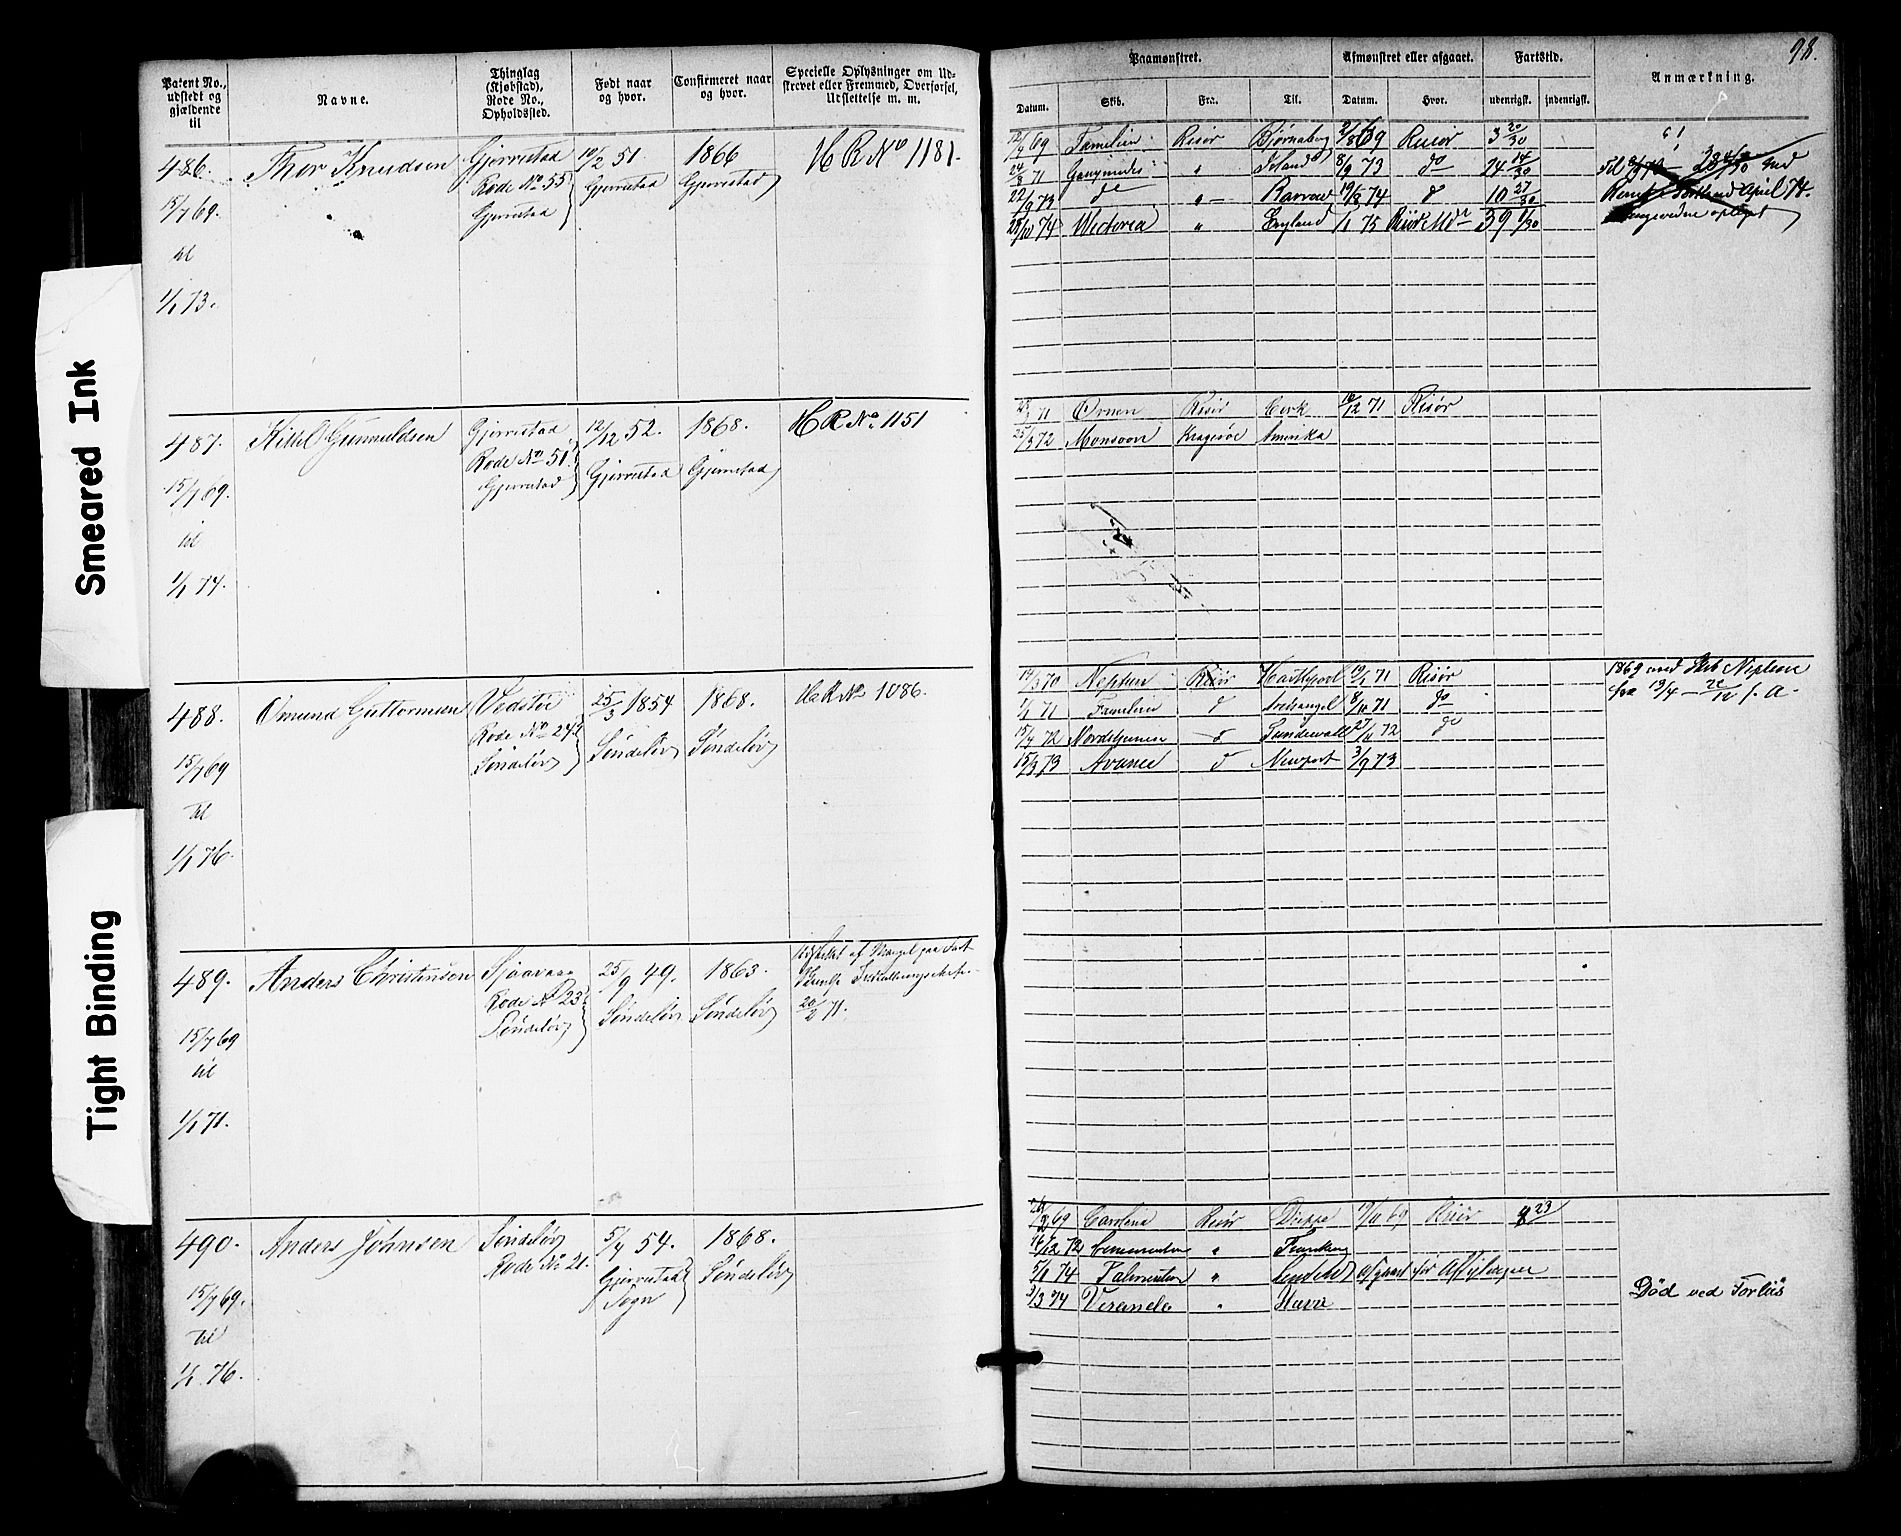 98.
Patent No., udstedt og gjældende til
Navne.
Thinglag (Kjøbstad), Rode No., Opholdssted.
Født naar og hvor.
Confirmeret naar og hvor.
Specielle Oplysninger om Udskrevet eller Fremmed, Overførsel, Udslettelse m. m.
Paamønstret.
Datum.
Skib.
Fra.
Til.
Afmønstret eller afgaaet.
Datum.
Hvor.
Fartstid.
udenrigsk.
indenrigsk.
Anmærkning.
Smeared Ink
Tight Binding
486.
15/7 69.
til
1/1 73.
Thor Knudsen
Gjerrestad
Rode No 55
Gjerrestad
10/2 51
Gjerrestad
1866
Gjerrestad
HR No 1181.
12/9 69 Familien Risør Bjørneborg 2/8 69 Risør 3 20/30
24/8 71 Ganymedes " Island 8/9 73 do 24 14/30
22/9 73 do " 19/8 74 d 10 27/30
28/10 74 Wictoria " England 1/1 75 39 1/30
April 74.
487.
15/7 69.
til
1/1 74.
Kittil Gunnuldsen
Gjerrestad
Rode No 51.
Gjerrestad
12/12 52.
Gjerrestad
1868.
Gjerrestad
HR No 1151
71 Ørnen Risør Cork 16/12 71 Risør
25/3 72 Monsoon Kragerøe Amerika
488.
15/7 69
til
1/1 76.
Omund Guttormsen
Vedstøe
Rode No 242
Søndeløv
25/3 1854
Søndeløv
1868.
Søndeløv
HR No 1086.
14/3 70 Neptun Risør Harthpool 19/1 71 Risør
1/4 71 Familien d Archangel 8/11 71 do
15/4 72 d Sundsvall 27/11 72 do
15/3 73 Avance d Newport 3/9 73
1869 med Skb Neptun
fra 13/4 — 20/12 f. A.
489.
15/7 69
til
1/1 71.
Anders Christenson
Rode No 23
Søndeløv
25/9 49.
Søndeløv
1863.
Søndeløv
Udslettet af Mangel paa Fart
20/2 71.
490.
15/7 69.
til
1/1 76.
Anders Johnsen
Søndeløv
Rode No 21.
5/4 54.
Gjerrestad
Sogn
1868.
Søndeløv
69 Carolina Risør Dieppe 9/11 69 Risør 8 23
14/12 72 "
5/1 74 " afgaaet før Afseilagen
3/3 74 " Havre
Død ved Forliis